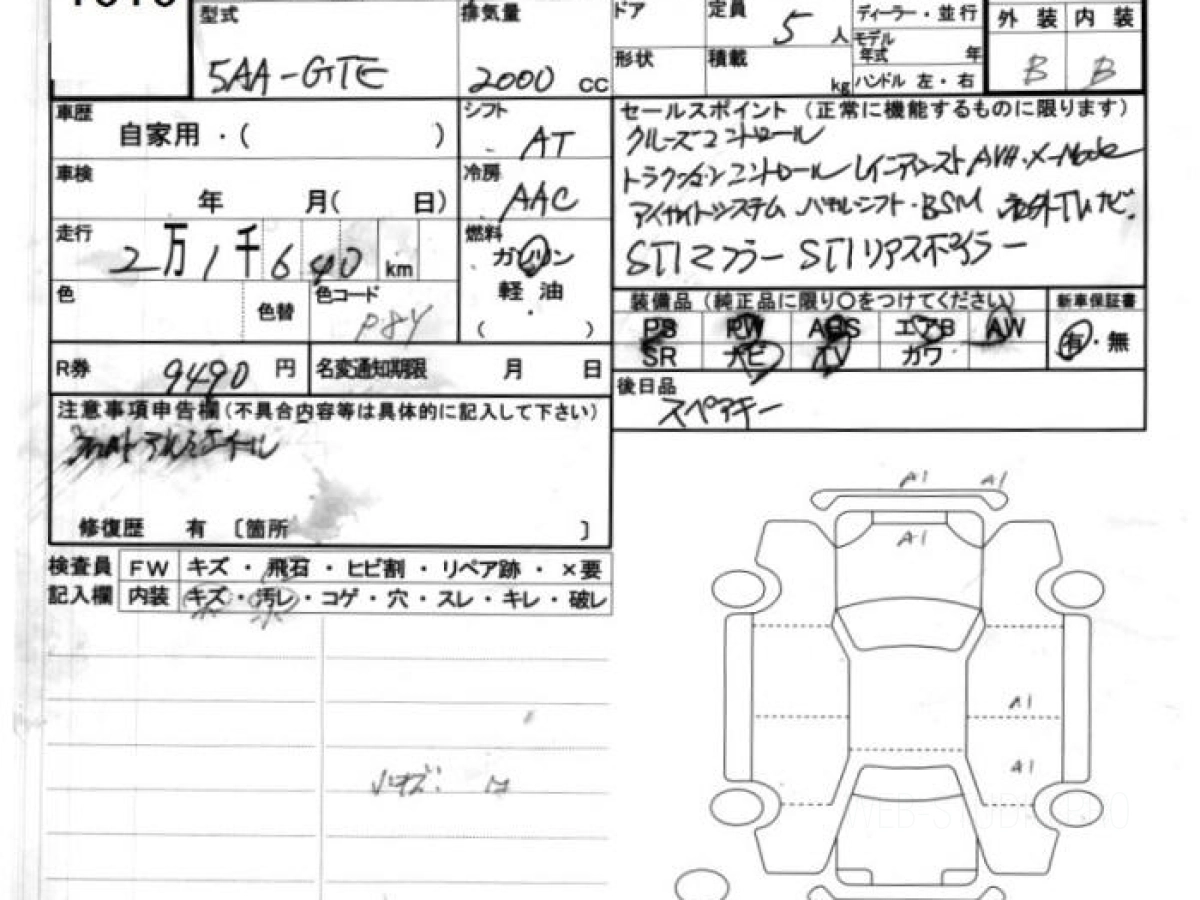 型式 排気量 ドア 定員 5 人 ディーラー・並行 外装 内装
モデル年式 年
5AA-GTE 2000 cc 形状 積載 kg ハンドル 左・右 B B
車歴 シフト セールスポイント（正常に機能するものに限ります）
自家用・（ ） AT クルーズコントロール
車検 冷房 トラクションコントロール AVH・X-Mode
年 月( 日) AAC アイサイトシステム パドルシフト・BSM 社外TVナビ.
走行 2万1千640km 燃料 ガソリン STIマフラー STIリアスポイラー
軽油
（ ・ ）
色 色替 色コード P8Y 装備品（純正品に限り〇をつけてください） 新車保証書
PS PW ABS エアB AW 有・無
SR ナビ TV カワ
R券 9490 円 名変通知期限 月 日
後日品 スペアキー
注意事項申告欄（不具合内容等は具体的に記入して下さい）
アルミホイール
修復歴 有 〔箇所 〕
A1 A1
A1
検査員 FW キズ・飛石・ヒビ割・リペア跡・×要
記入欄 内装 キズ・汚レ・コゲ・穴・スレ・キレ・破レ
A1
A1